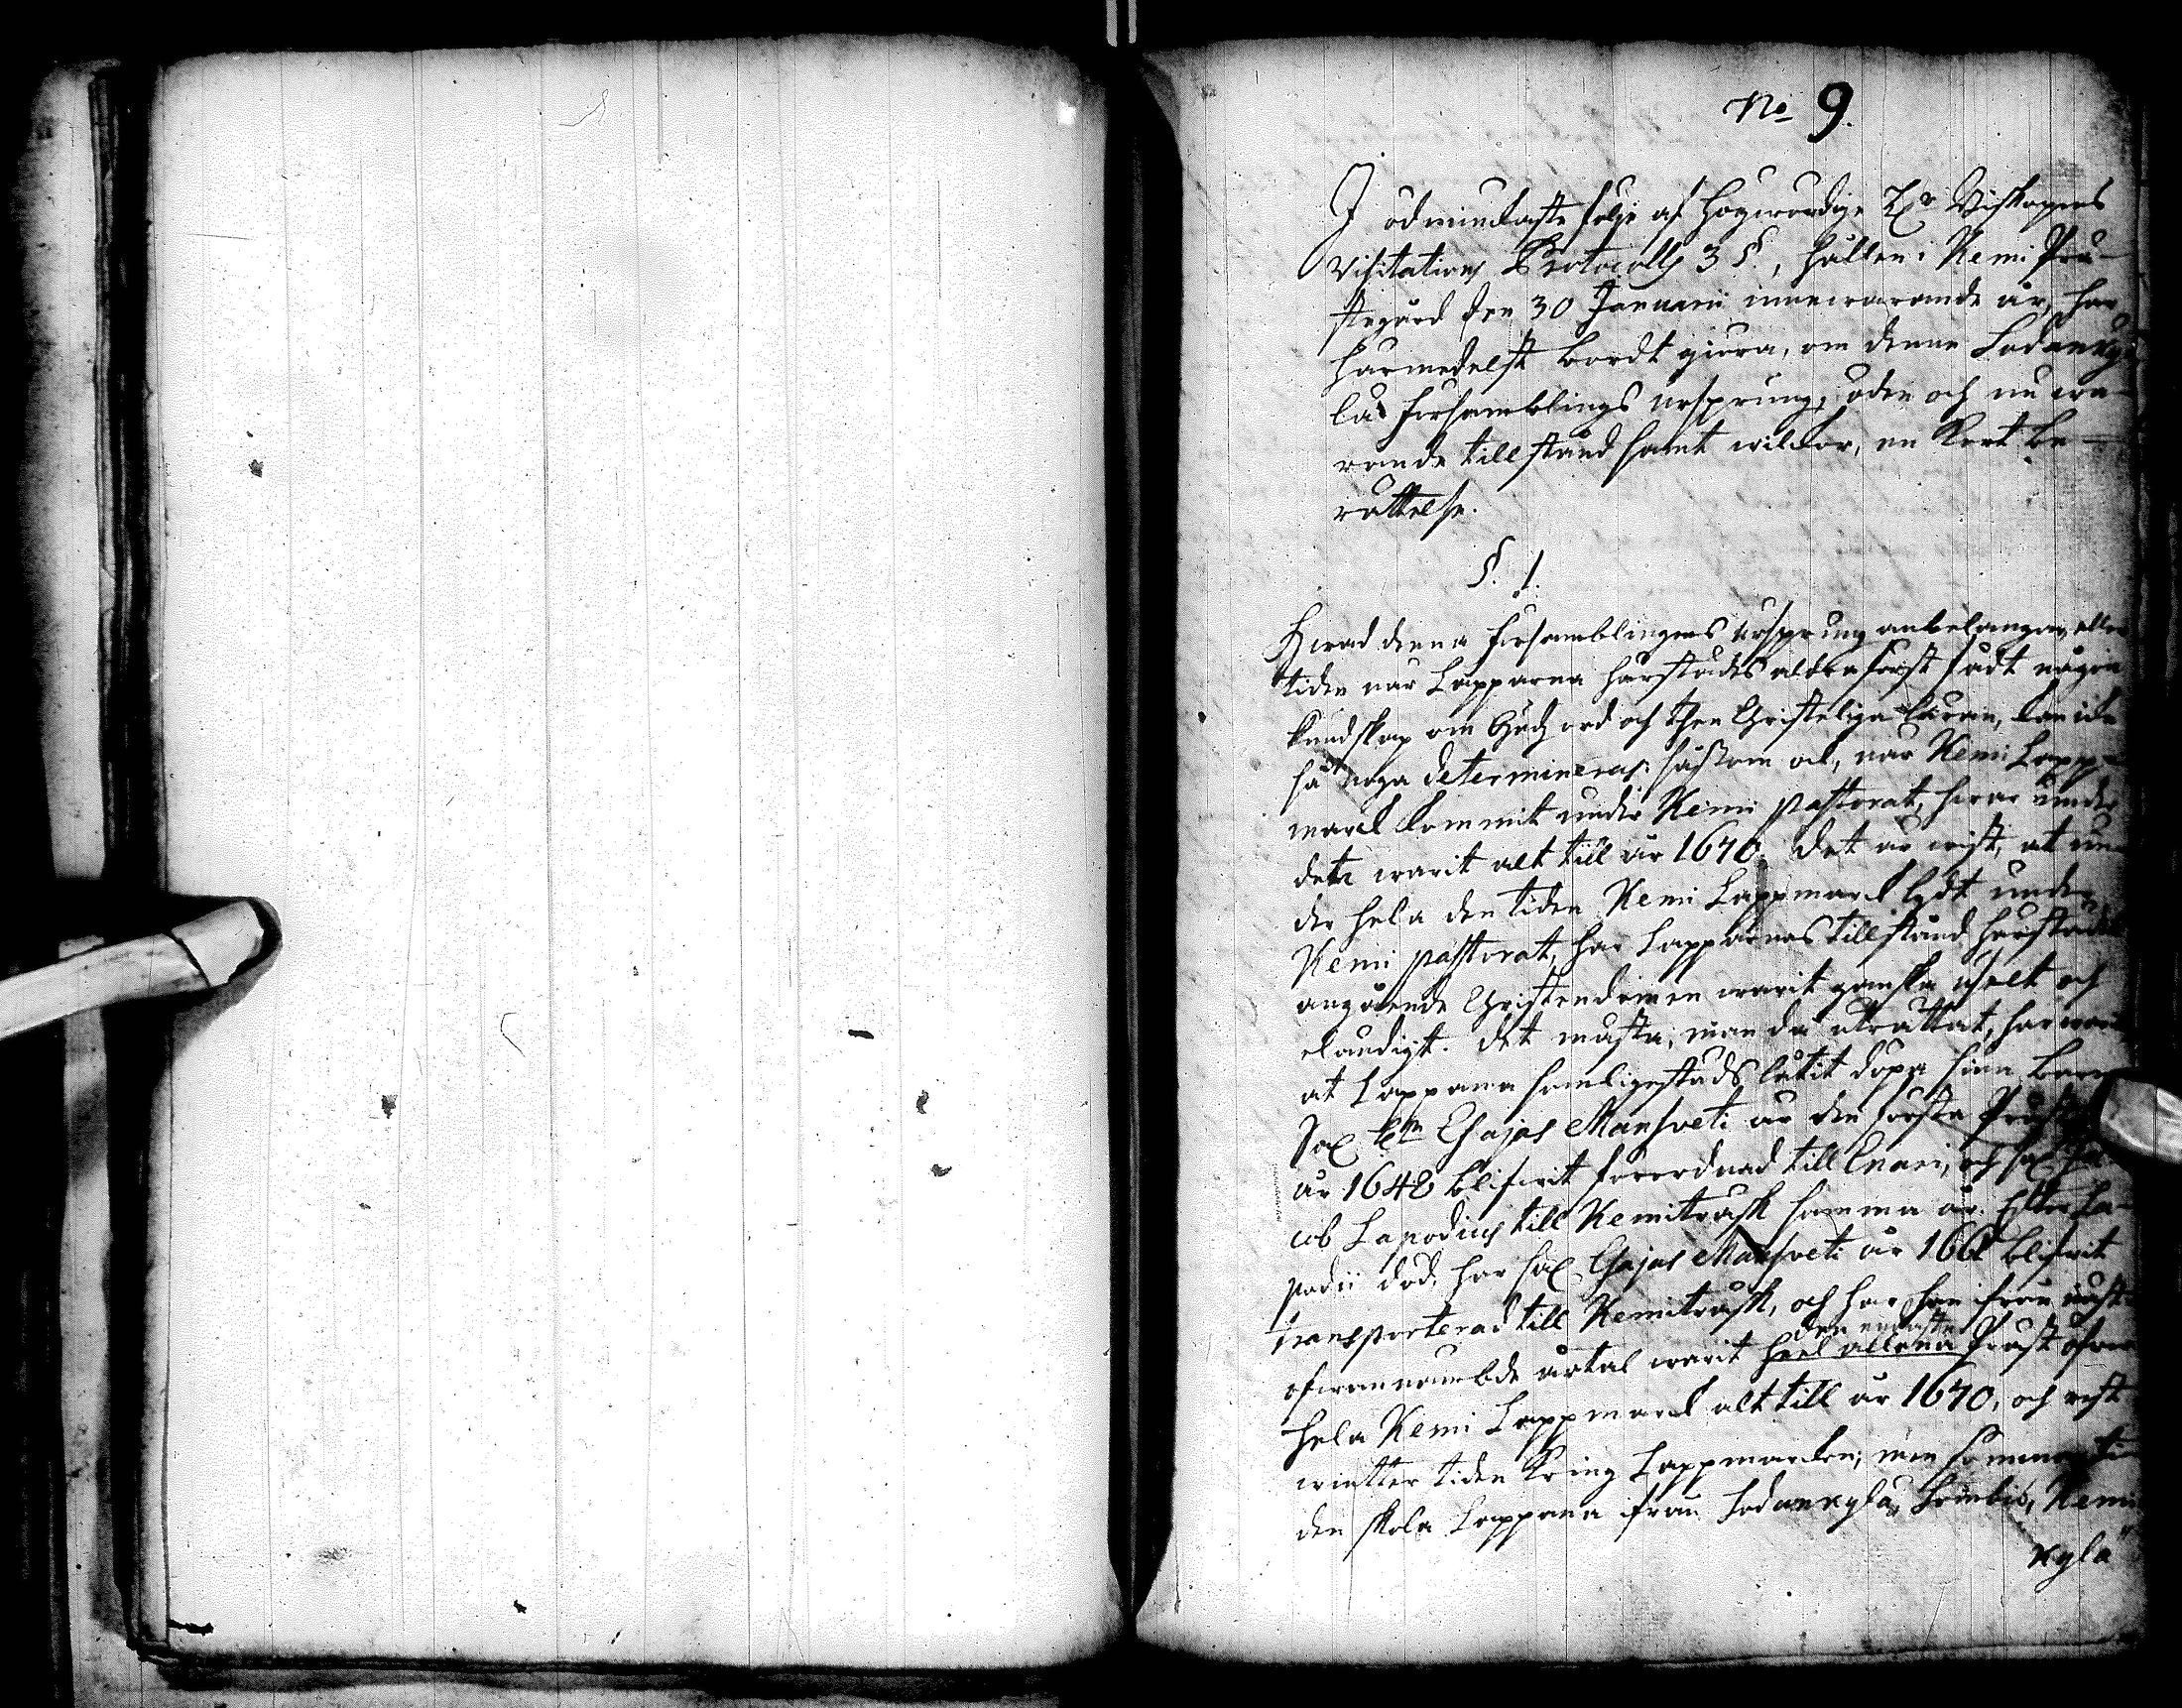 No 9.
I ödmiukaste följe af Högwördige Hr Biskopens
Visitations Protocolls 3 §., hållen i Kemi Prä-
stegård den 30 Januarii innewarande år, har
härmedelst bordt giöra, om denne Sodanky-
lä Församblings ursprung, öden och nu wa-
rande tillstånd samt wilckor, en kort be-
rättelse.
§. 1.
Hwad denna Församblingens ursprung anbelangar, eller
tiden när Lapparna härstädes aldraförst fådt någon
kundskap om Gudz ord och then Christeliga läran, kan icke
så noga determineras: såsom ock, när Kemi Lapp-
marck kommit under Kemi pastorat, hwar under
dett warit alt till år 1670. Det är wist, at un-
der hela den tiden Kemi Lappmarck lydt under
Kemi pastorat, har Lapparnas tillstånd härstädes
angående Christendomen warit ganska uselt och
eländigt. Det mästa, man då uträttat, har warit
at Lapparna somligestäds låtit döpa sina barn
Sal. Hr Esajas Mansveti är den första Präst
år 1648 blifwit förordnad till Enari, och sal. Ja-
cob Lapodius till Kemiträsk samma år. Efter La-
podii död, har sal. Esajas Mansveti år 1661 blifwit
transporterad till Kemiträsk, och har han ifrån näst-
ofwannämbde årtal warit heel allena Präst öfwer
den endaste
hela Kemi Lappmarck alt till år 1670, och rest
wintter tiden kring Lappmarken; men sommar ti-
den skola Lapparna ifrån Sodankylä, Sombiö, Kemi
kylä